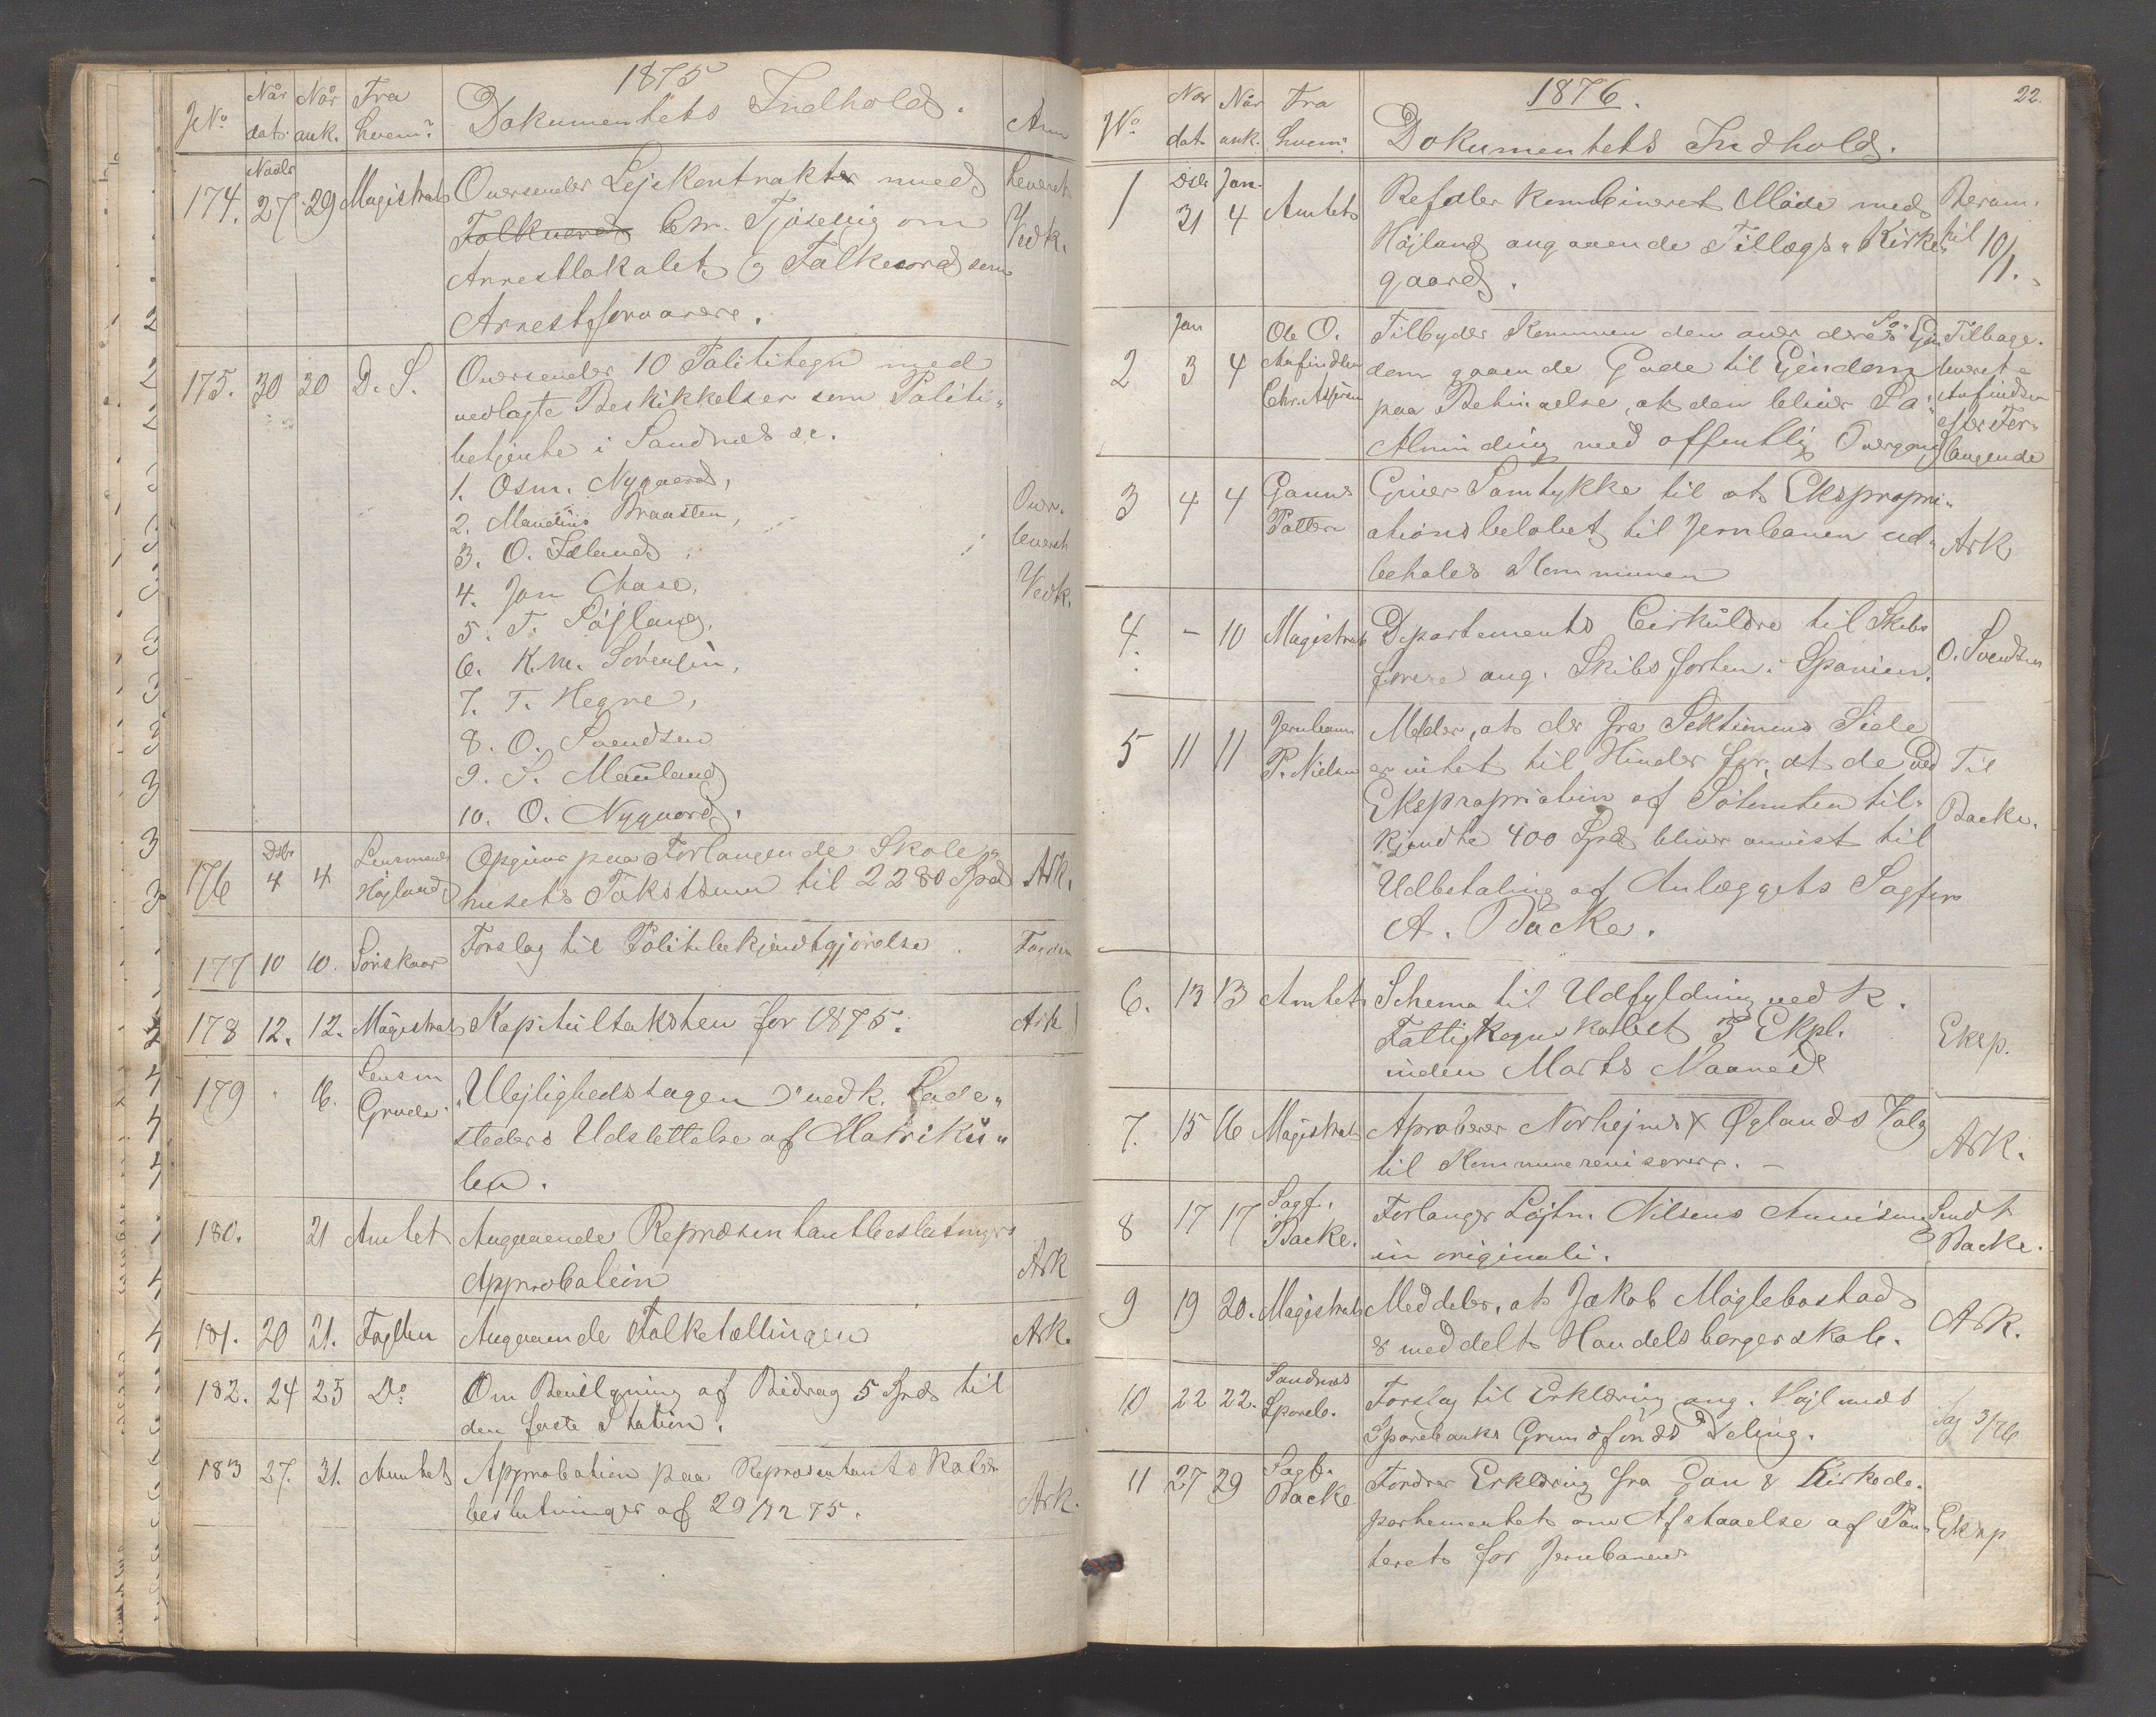 1875
No Når dat. Når ank. Fra hvem? Dokumentets Indhold. Anm
174. Novbr 27 29 Magistrat Oversender Lejekontrakter med Leveret
Falkevord Chr. Tjøsevig om Vedk.
Arrestlokalet og Falkevord som
Arrestforvarere.
175. 30 30 D. S. Oversender 10 Polititegn med
vedlagte Beskikkelser som Politi-
betjente i Sandnæs etc.
1. Osm. Nygaard,
2. Maudius Braasten, Over-
3. O. Iæland, leveret
4. Jan Chase, Vedk.
5. T. Højland,
6. K. M. Sørensen,
7. T. Hegre,
8. O. Svendsen
9. S. Mauland
10. O. Nygaard.
176 Dsbr 4 4 Lensmand Højland Opgiver paa Forlangende Skole-
husets Takstsum til 2280 Spd Ark.
177 10 10. Sørskaar Forslag til Politibekjendtgjørelse. Fogden
178 12. 12. Magistrat Kapitultaksten for 1875. Ark
179 " 16. Lensm Grude "Ulejlighedstagen" ved k. Lade-
steders Udslettelse af Matriku-
len.
180. 21 Amtet Angaaende Repræsentantbeslutningers
Approbation Ark
181. 20 21. Fogden Angaaende Folketællingen Ark.
182. 24 25 Do Om Bevilgning af Bidrag 5 Spd til
den faste Station.
183 27. 31. Amtet Approbation paa Repræsentantskabs-
beslutninger af 29/12 75. Ark.
1876.
22.
No Når dat. Når ank. Fra hvem? Dokumentets Indhold.
1 Dsbr 31 Jan. 4 Amtet Befaler kombineret Møde med Beram.
Højland angaaende Tillægs- Kirke- til 10/1.
gaard.
2 Jan 3 4 Ole O. Anfindsen Chr. Tilbyder Kommunen den over deres Ejen- Tilbage-
dom gaaende Gade til Ejendom leveret
paa Betingelse, at den bliver Anfindsen
Alminding med offentlig Overgang efter For-
langende
3 4 4 Ganns Potteri Giver Samtykke til at Ekspropri-
ationsbeløbet til Jernbanen ud- Ark
betales Kommunen
4. - 10 Magistrat Departements Cirkulære til Skibs
førere ang. Skibsfarten i Spanien. O. Svendsen
5 11 11 Jernbanen P. Nielsen Melder, at der fra Sektionens Side
er intet til Hinder for, at de ved Til
Ekspropriation af Søtomten til- Backe.
kjendte 400 Spd bliver anvist til
Udbetaling af Anlæggets Sagfører
A. Backe.
6. 13 13 Amtet Schema til Udfyldning ved k.
Fattigregnskabet 3 Expl. Eksp.
inden Marts Maaned
7. 15 16 Magistrat Aproberer Norheims & Øglands Valg
til Kommunerevisorer. - Ark.
8 17 17 Sagf. Backe. Forlanger Løjtn. Nilsens Anvisning Sendt
in originali. Backe.
9 19 20. Magistrat Meddeler, at Jakob Møglebostad
er meddelt Handelsborgerskab. Ark.
10 22 22. Sandnæs Spareb. Forslag til Erklæring ang. Højlands
Sparebanks Grundfonds Deling. Sag 3/76
11 27 29 Sagf. Backe Fordrer Erklæring fra Gan & Kirkede-
partementet om Afstaaelse af Pan- Eksp
teret for Jernbanen